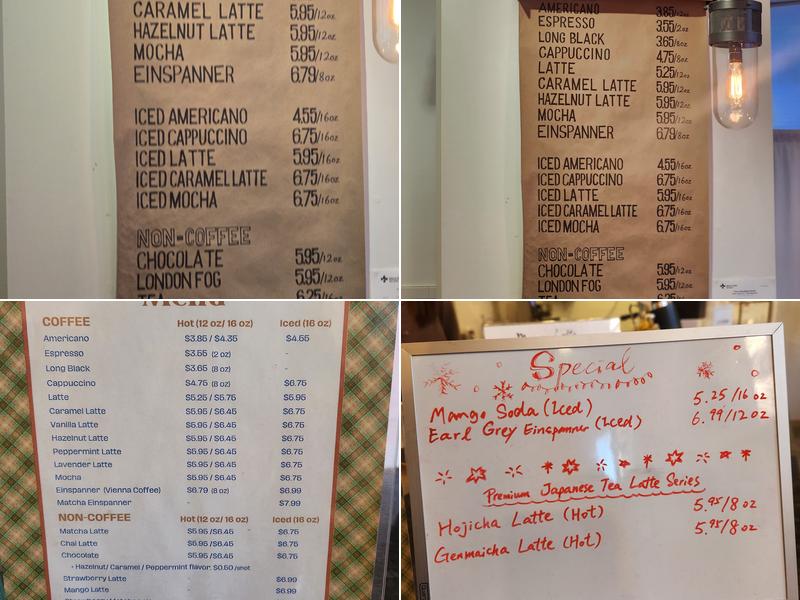 CARAMEL LATTE 5.95/12oz
HAZELNUT LATTE 5.95/12oz
MOCHA 5.95/12oz
EINSPANNER 6.79/8oz
ICED AMERICANO 4.55/16oz
ICED CAPPUCCINO 6.75/16oz
ICED LATTE 5.95/16oz
ICED CARAMEL LATTE 6.75/16oz
ICED MOCHA 6.75/16oz
NON-COFFEE
CHOCOLATE 5.95/12oz
LONDON FOG 5.95/12oz
TEA 6.25/16oz
AMERICANO 3.85/12oz
ESPRESSO 3.55/2oz
LONG BLACK 3.65/8oz
CAPPUCCINO 4.75/8oz
LATTE 5.25/12oz
CARAMEL LATTE 5.95/12oz
HAZELNUT LATTE 5.95/12oz
MOCHA 5.95/12oz
EINSPANNER 6.79/8oz
ICED AMERICANO 4.55/16oz
ICED CAPPUCCINO 6.75/16oz
ICED LATTE 5.95/16oz
ICED CARAMEL LATTE 6.75/16oz
ICED MOCHA 6.75/16oz
NON-COFFEE
CHOCOLATE 5.95/12oz
LONDON FOG 5.95/12oz
Menu
COFFEE Hot (12 oz/ 16 oz) Iced (16 oz)
Americano $3.85 / $4.35 $4.55
Espresso $3.55 (2 oz) -
Long Black $3.65 (8 oz) -
Cappuccino $4.75 (8 oz) $6.75
Latte $5.25 / $5.75 $5.95
Caramel Latte $5.95 /$6.45 $6.75
Vanilla Latte $5.95 /$6.45 $6.75
Hazelnut Latte $5.95 /$6.45 $6.75
Peppermint Latte $5.95 /$6.45 $6.75
Lavender Latte $5.95 /$6.45 $6.75
Mocha $5.95 /$6.45 $6.75
Einspanner (Vienna Coffee) $6.79 (8 oz) $6.99
Matcha Einspanner - $7.99
NON-COFFEE Hot (12 oz/ 16 oz) Iced (16 oz)
Matcha Latte $5.95 /$6.45 $6.75
Chai Latte $5.95 /$6.45 $6.75
Chocolate $5.95 /$6.45 $6.75
+ Hazelnut/ Caramel / Peppermint flavor, $0.50 /shot
Strawberry Latte $6.99
Mango Latte $6.99
Special
Mango Soda (Iced) 5.25/16 oz
Earl Grey Einspanner (Iced) 6.99/12 oz
Premium Japanese Tea Latte Series
Hojicha Latte (Hot) 5.95/8 oz
Genmaicha Latte (Hot) 5.95/8 oz